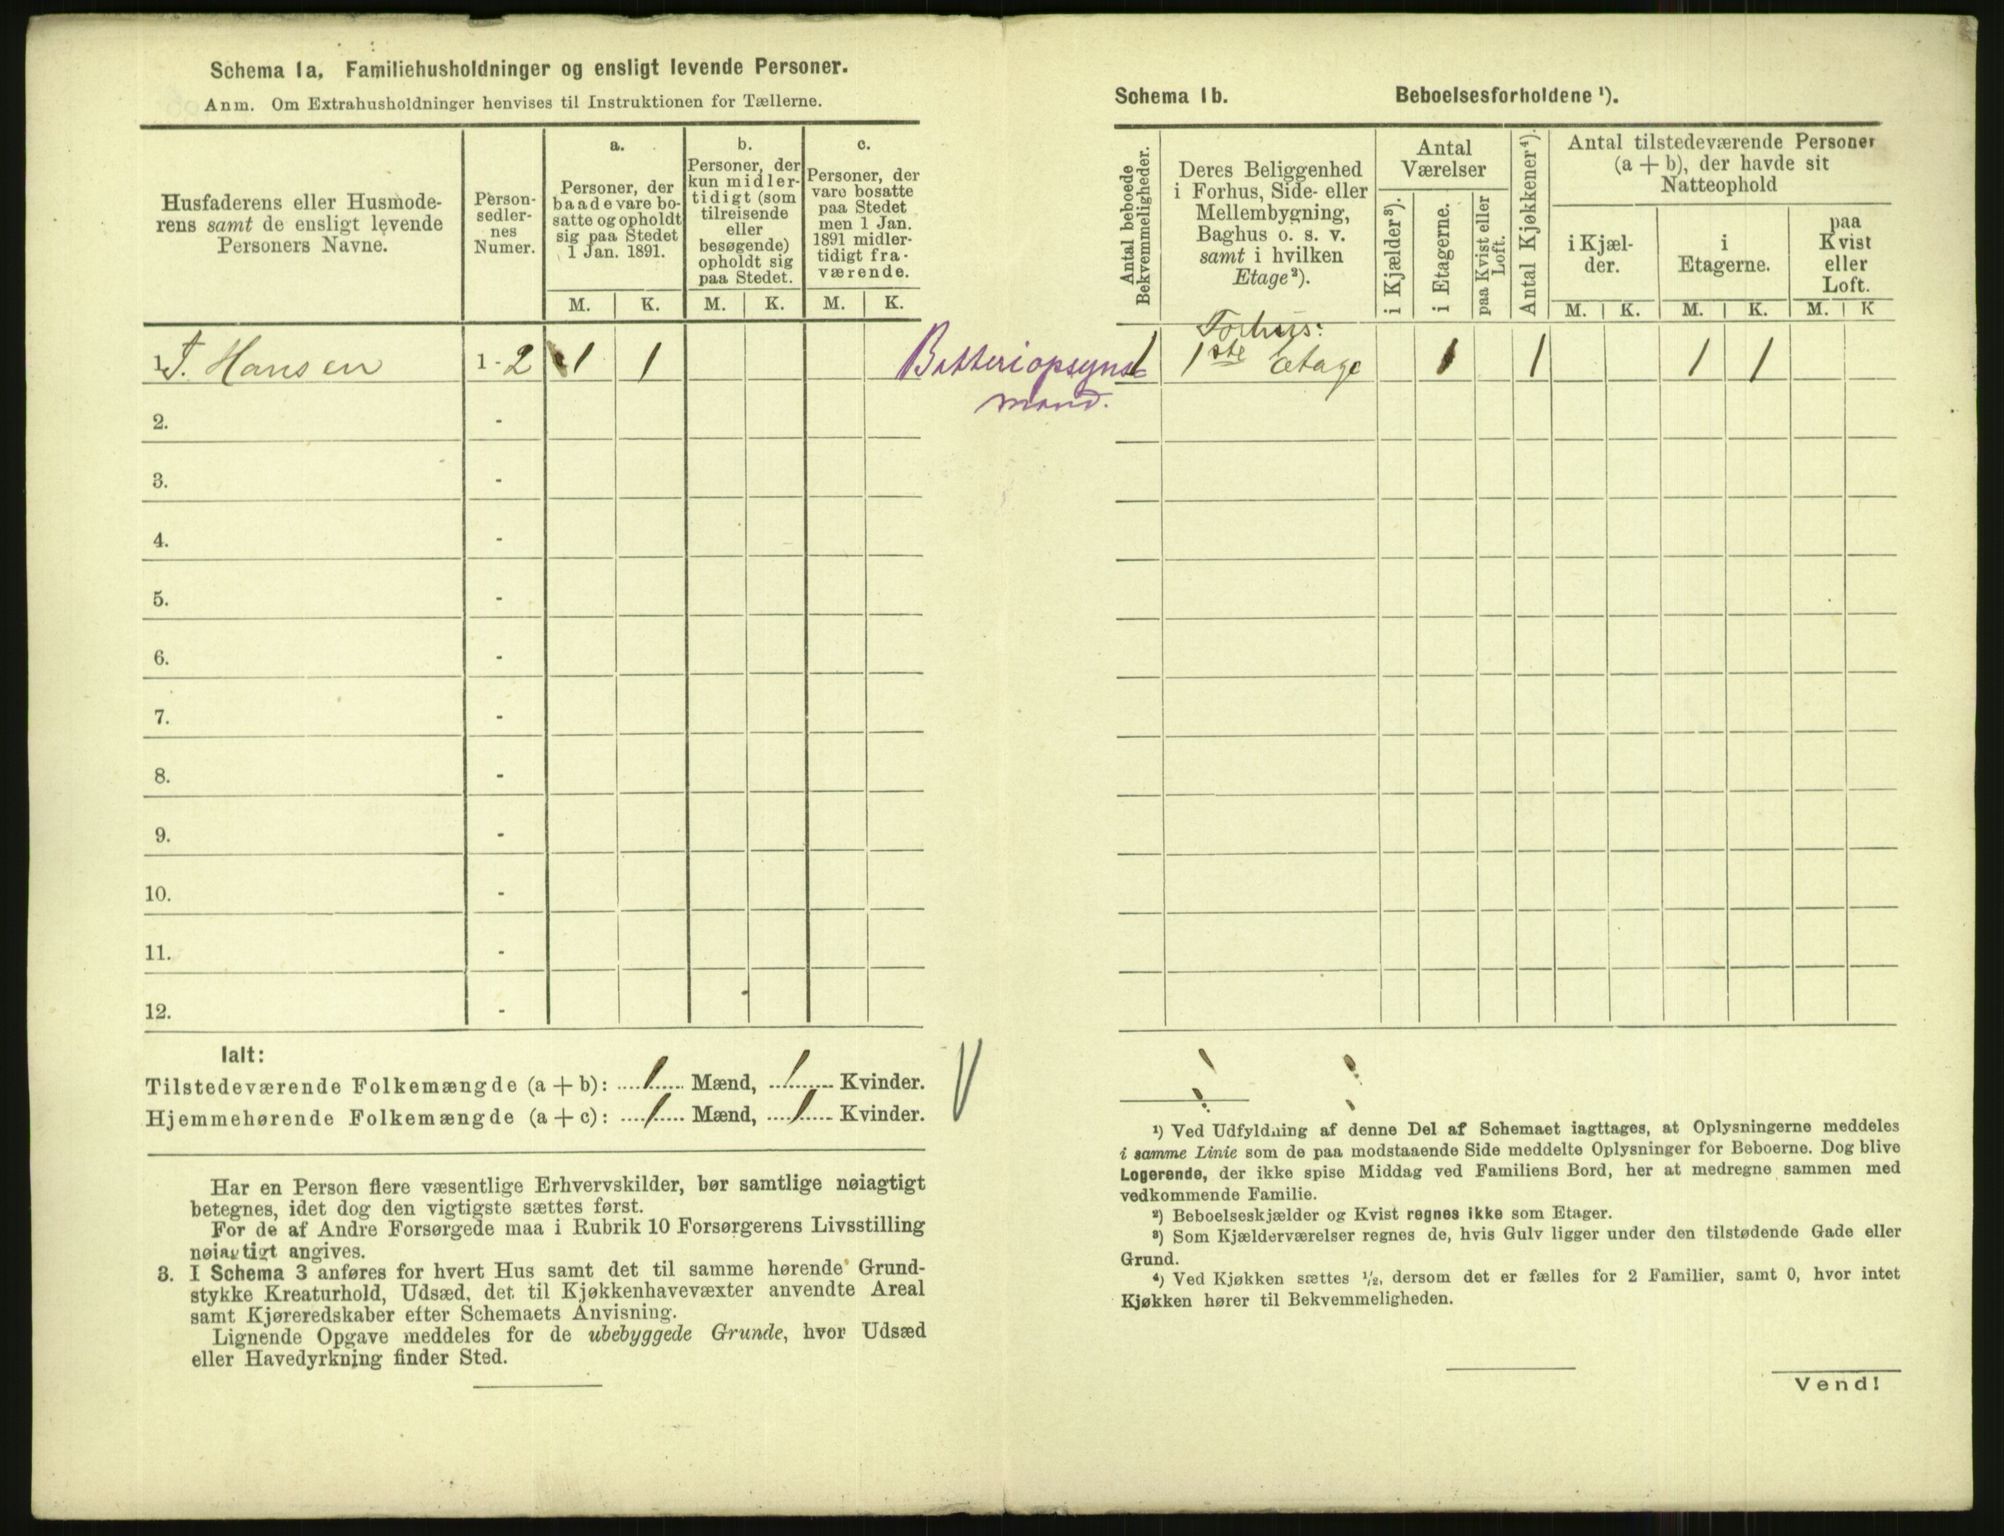 Schema 1a, Familiehusholdninger og ensligt levende Personer.
Anm. Om Extrahusholdninger henvises til Instruktionen for Tællerne.
Husfaderens eller Husmode-
rens samt de ensligt levende
Personers Navne.
Person-
sedler-
nes
Numer.
a.
Personer, der
baade vare bo-
satte og opholdt
sig paa Stedet
1 Jan. 1891.
b.
Personer, der
kun midler-
tidigt (som
tilreisende
eller
besøgende)
opholdt sig
paa Stedet.
c.
Personer, der
vare bosatte
paa Stedet
men 1 Jan.
1891 midler-
tidigt fra-
værende.
M. K. M. K. M. K.
1. T. Hansen 1 - 2 1 1 Batteriopsyns=
mand.
2. -
3. -
4. -
5. -
6. -
7. -
8. -
9. -
10. -
11. -
12. -
Ialt:
Tilstedeværende Folkemængde (a + b): 1 Mænd, 1 Kvinder.
Hjemmehørende Folkemængde (a + c): 1 Mænd, 1 Kvinder.
Har en Person flere væsentlige Erhvervskilder, bør samtlige nøiagtigt
betegnes, idet dog den vigtigste sættes først.
For de af Andre Forsørgede maa i Rubrik 10 Forsørgerens Livsstilling
nøiagtigt angives.
3. I Schema 3 anføres for hvert Hus samt det til samme hørende Grund-
stykke Kreaturhold, Udsæd, det til Kjøkkenhavevæxter anvendte Areal
samt Kjøreredskaber efter Schemaets Anvisning.
Lignende Opgave meddeles for de ubebyggede Grunde, hvor Udsæd
eller Havedyrkning finder Sted.
Schema 1b. Beboelsesforholdene ¹).
Antal beboede
Bekvemmeligheder.
Deres Beliggenhed
i Forhus, Side- eller
Mellembygning,
Baghus o. s. v.
samt i hvilken
Etage²).
Antal
Værelser
i Kjælder³).
i Etagerne.
paa Kvist eller
Loft.
Antal Kjøkkener⁴).
Antal tilstedeværende Personer
(a + b), der havde sit
Natteophold
i Kjæl-
der.
i
Etagerne.
paa
Kvist
eller
Loft.
M. K. M. K. M. K
Forhus:
1 1ste etage 1 1 1 1
¹) Ved Udfyldning af denne Del af Schemaet iagttages, at Oplysningerne meddeles
i samme Linie som de paa modstaaende Side meddelte Oplysninger for Beboerne. Dog blive
Logerende, der ikke spise Middag ved Familiens Bord, her at medregne sammen med
vedkommende Familie.
²) Beboelseskjælder og Kvist regnes ikke som Etager.
³) Som Kjælderværelser regnes de, hvis Gulv ligger under den tilstødende Gade eller
Grund.
⁴) Ved Kjøkken sættes ½, dersom det er fælles for 2 Familier, samt 0, hvor intet
Kjøkken hører til Bekvemmeligheden.
Vend!